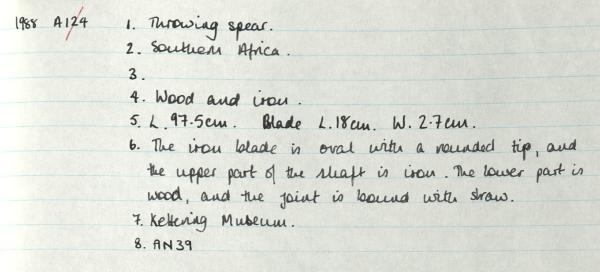 1988 A124 1. Throwing spear.
2. Southern Africa.
3.
4. Wood and iron.
5. L. 97.5cm. Blade L.18cm. W. 2.7cm.
6. The iron blade is oval with a rounded tip, and
the upper part of the shaft is iron. The lower part is
wood, and the joint is bound with straw.
7. Kettering Museum.
8. AN39